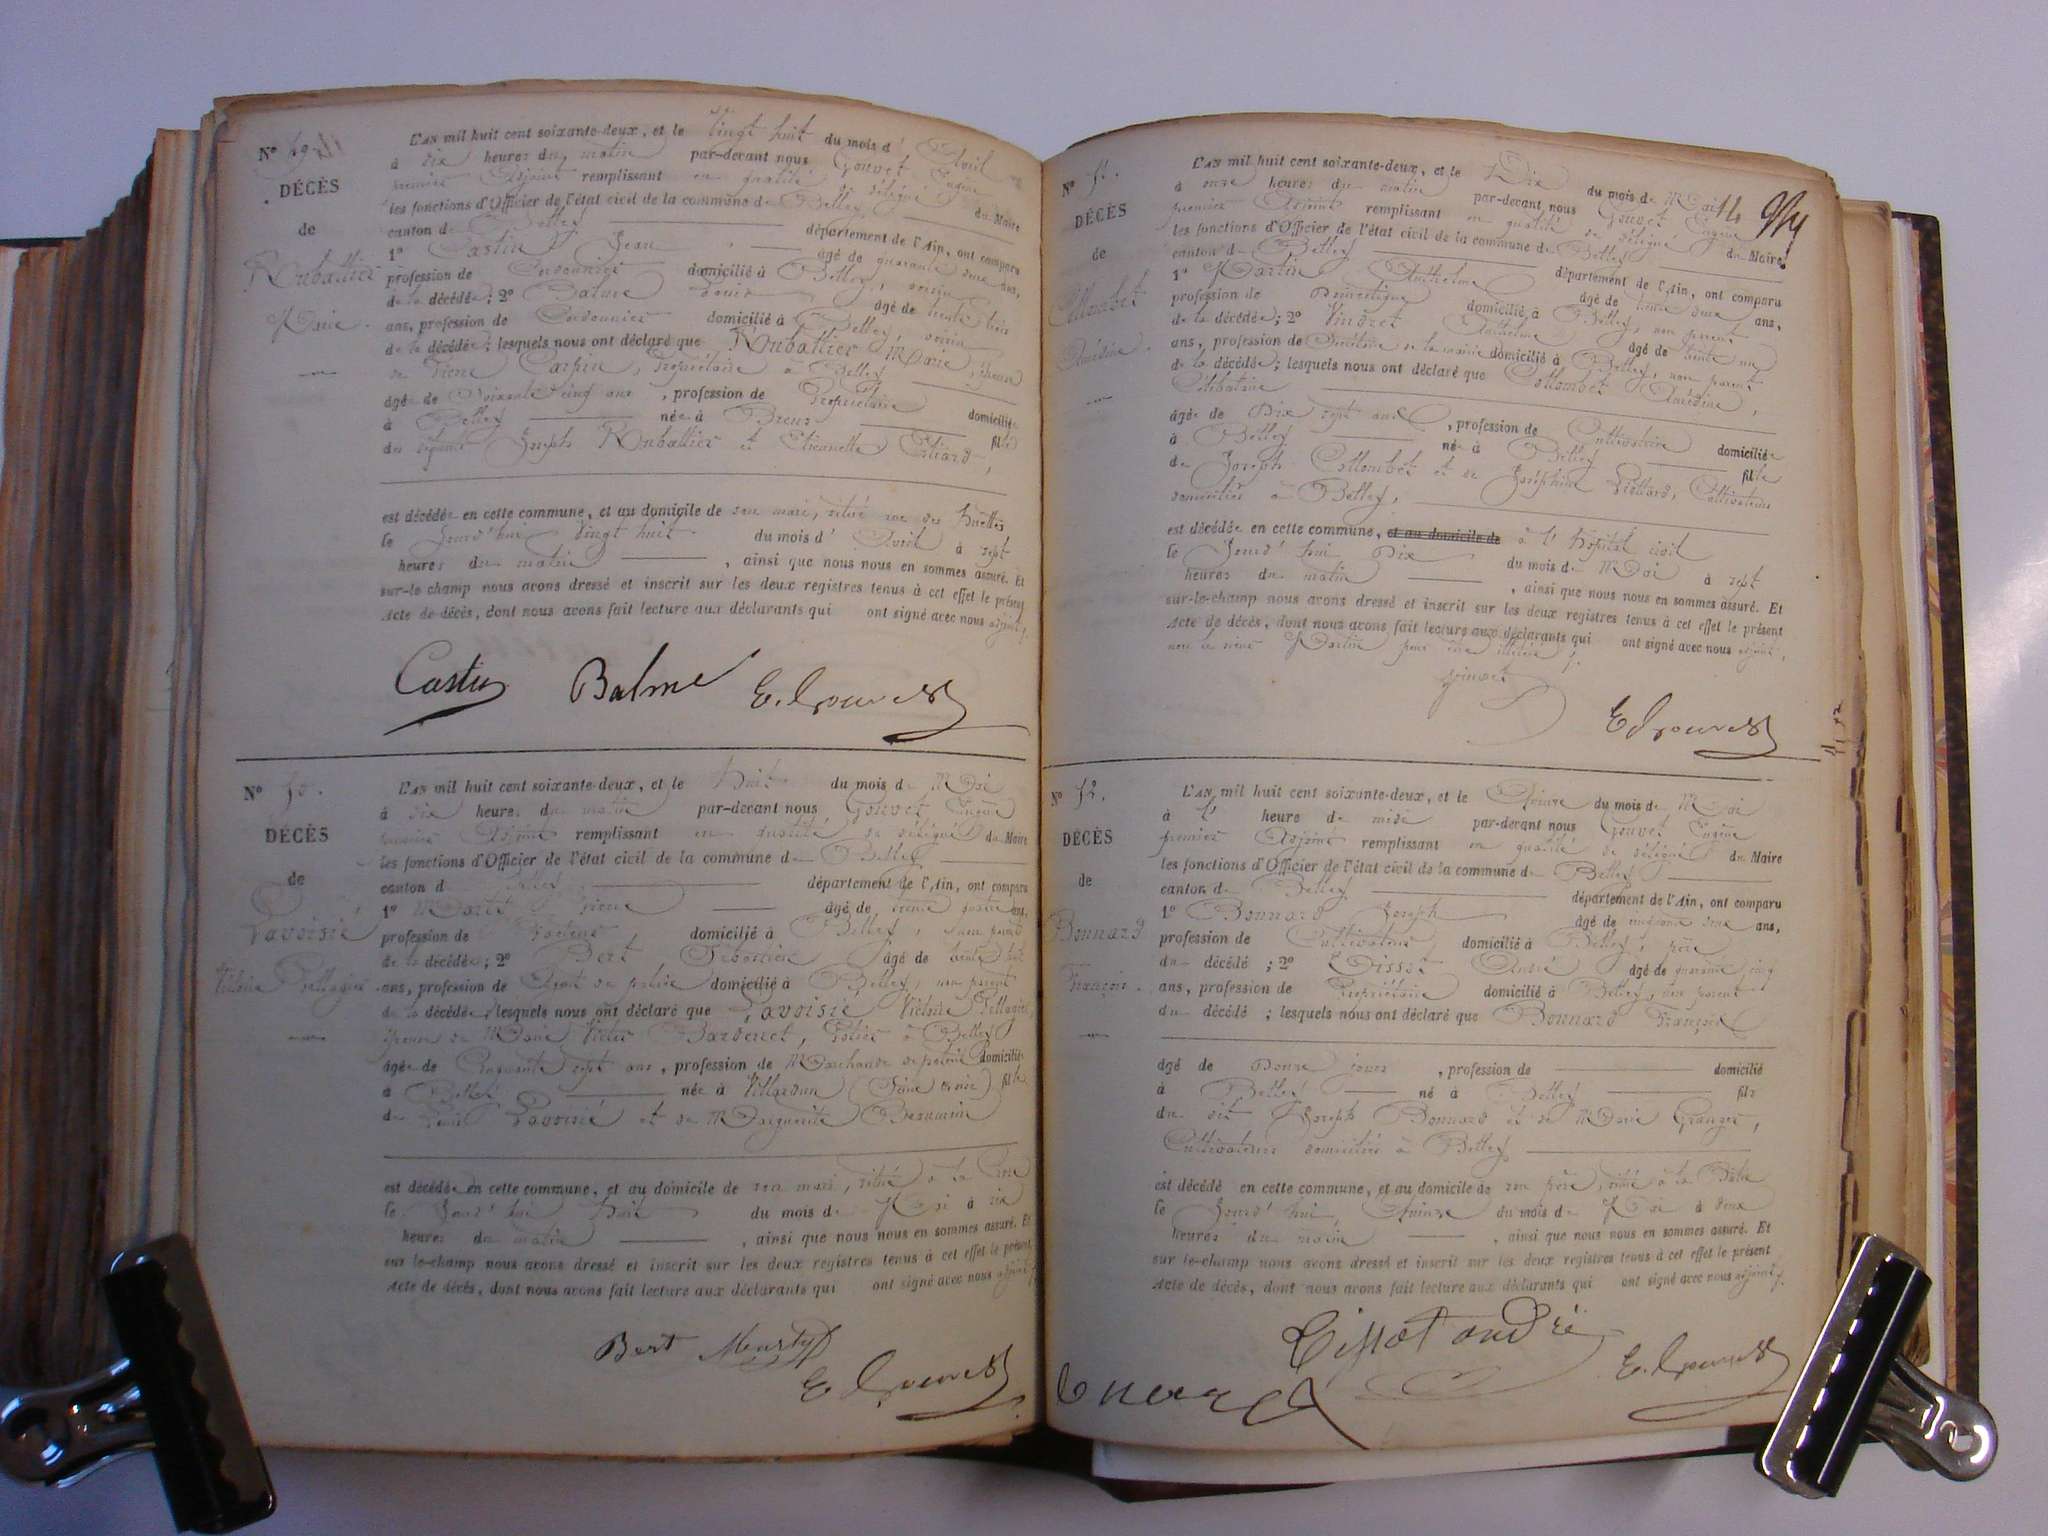 N° 49.
DÉCÈS
de
Rubattier
Marie.
L'AN mil huit cent soixante-deux, et le vingt huit du mois d' Avril
à dix heures du matin par-devant nous Gouvet Eugène
premier Adjoint remplissant en qualité de délégué du Maire
les fonctions d'Officier de l'état civil de la commune de Belley
canton de Belley département de l'Ain, ont comparu
1° Castin Jean âgé de quarante deux ans,
profession de Cordonnier domicilié à Belley, voisin
de la décédée; 2° Balme Louis âgé de trente trois
ans, profession de Cordonnier domicilié à Belley, voisin
de la décédée; lesquels nous ont déclaré que Rubattier Marie, épouse
de Pierre Carpin, Propriétaire à Belley
âgée de soixante cinq ans, profession de Propriétaire domiciliée
à Belley née à Brens fille
de Joseph Rubattier et Etiennette
est décédée en cette commune, et au domicile de son mari, situé rue des
le Jourd'hui vingt huit du mois d' Avril à sept
heures du matin, ainsi que nous nous en sommes assuré. Et
sur-le-champ nous avons dressé et inscrit sur les deux registres tenus à cet effet le présent
Acte de décès, dont nous avons fait lecture aux déclarants qui ont signé avec nous adjoint.
Castin Balme E. Gouvet
N° 50.
DÉCÈS
de
Lavoisié
Victoire Pellagie
L'AN mil huit cent soixante-deux, et le huit du mois de Mai
à dix heures du matin par-devant nous Gouvet Eugène
premier Adjoint remplissant en qualité de délégué du Maire
les fonctions d'Officier de l'état civil de la commune de Belley
canton de Belley département de l'Ain, ont comparu
1° Pierre âgé de trente quatre ans,
profession de Facteur domicilié à Belley, non parent
de la décédée; 2° Bert Sébastien âgé de trente huit
ans, profession de Agent de police domicilié à Belley, non parent
de la décédée, lesquels nous ont déclaré que Lavoisié Victoire Pellagie,
épouse de Marie Victor Bardenet, Potier à Belley
âgée de Cinquante sept ans, profession de Marchande de poterie domiciliée
à Belley née à Villardun fille
de Lavoisié et de Marguerite
est décédée en cette commune, et au domicile de son mari, situé à la
le Jourd'hui huit du mois de Mai à six
heures du matin, ainsi que nous nous en sommes assuré. Et
sur le-champ nous avons dressé et inscrit sur les deux registres tenus à cet effet le présent
Acte de décès, dont nous avons fait lecture aux déclarants qui ont signé avec nous adjoint.
Bert E. Gouvet
N° 51.
DÉCÈS
de
Collombet
L'AN mil huit cent soixante-deux, et le Dix du mois de Mai
à onze heures du matin par-devant nous Gouvet Eugène
premier Adjoint remplissant en qualité de délégué du Maire
les fonctions d'Officier de l'état civil de la commune de Belley
canton de Belley département de l'Ain, ont comparu
1° Martin Anthelme âgé de trente deux ans,
profession de Domestique domicilié à Belley, non parent
de la décédée; 2° Vindret Anthelme âgé de trente un
ans, profession de Secrétaire de la mairie domicilié à Belley, non parent
de la décédée; lesquels nous ont déclaré que Collombet
Célibataire
âgée de Dix sept ans, profession de Cultivatrice domiciliée
à Belley née à Belley fille
de Joseph Collombet et de Joséphine Cultivateurs
domiciliés à Belley,
est décédée en cette commune, et au domicile de à l'hôpital civil
le Jourd'hui Dix du mois de Mai à sept
heures du matin, ainsi que nous nous en sommes assuré. Et
sur-le-champ nous avons dressé et inscrit sur les deux registres tenus à cet effet le présent
Acte de décès, dont nous avons fait lecture aux déclarants qui ont signé avec nous adjoint,
non le sieur Martin pour être illétéré.
E. Gouvet
N° 52.
DÉCÈS
de
Bonnard
François.
L'AN mil huit cent soixante-deux, et le Quinze du mois de Mai
à l' heure de midi par-devant nous Gouvet Eugène
premier Adjoint remplissant en qualité de délégué du Maire
les fonctions d'Officier de l'état civil de la commune de Belley
canton de Belley département de l'Ain, ont comparu
1° Bonnard Joseph âgé de cinquante deux ans,
profession de Cultivateur domicilié à Belley, père
du décédé; 2° Tissot André âgé de quarante cinq
ans, profession de Propriétaire domicilié à Belley, non parent
du décédé; lesquels nous ont déclaré que Bonnard François
âgé de Douze jours, profession de domicilié
à Belley né à Belley fils
du dit Joseph Bonnard et de Marie Granger,
Cultivateurs domiciliés à Belley
est décédé en cette commune, et au domicile de son père, situé à la
le Jourd'hui Quinze du mois de Mai à deux
heures du matin, ainsi que nous nous en sommes assuré. Et
sur-le-champ nous avons dressé et inscrit sur les deux registres tenus à cet effet le présent
Acte de décès, dont nous avons fait lecture aux déclarants qui ont signé avec nous adjoint.
Tissot andré E. Gouvet